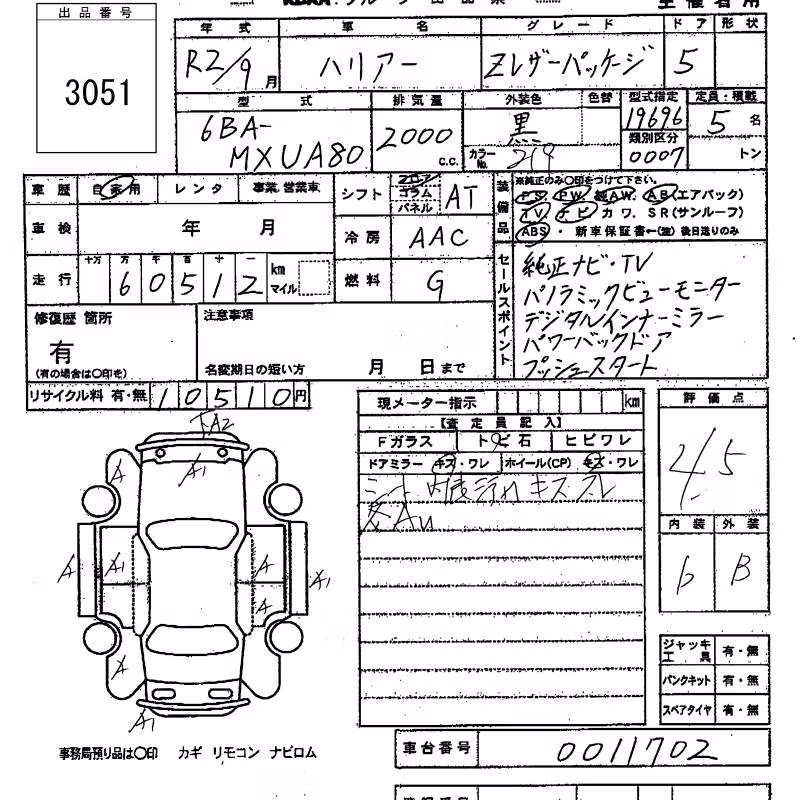 出品番号
3051
年式 車名 グレード ドア 形状
R2/9月 ハリアー Zレザーパッケージ 5
型式 排気量 外装色 色替 型式指定 定員・積載
6BA-MXUA80 2000 c.c. 黒 カラーNo. 219 19696 5名
類別区分
0007 トン
車歴 自家用 レンタ 事業、営業車
シフト コラム パネル AT
車検 年 月
冷房 AAC
走行 十万 万 千 百 十 一
60512 km マイル
燃料 G
装備品
※純正のみ○印をつけて下さい。
PS. PW. 純AW. AB(エアバック)
TV. ナビ カワ. SR(サンルーフ)
ABS・新車保証書←(注)後日送りのみ
セールスポイント
純正ナビ・TV
パノラミックビューモニター
デジタルインナーミラー
パワーバックドア
プッシュスタート
修復歴 箇所
有
(有の場合は○印を)
注意事項
名変期日の短い方 月 日まで
リサイクル料 有・無 10510円
現メーター指示 km
【査定員記入】
Fガラス トビ石 ヒビワレ
ドアミラー キズ・ワレ ホイール(CP) キズ・ワレ
評価点
4.5
内装 外装
b B
下A2
A A1
A A1 A A1
A
A
A1
ジャッキ工具 有・無
パンクキット 有・無
スペアタイヤ 有・無
事務局預り品は○印 カギ リモコン ナビロム
車台番号 0011702